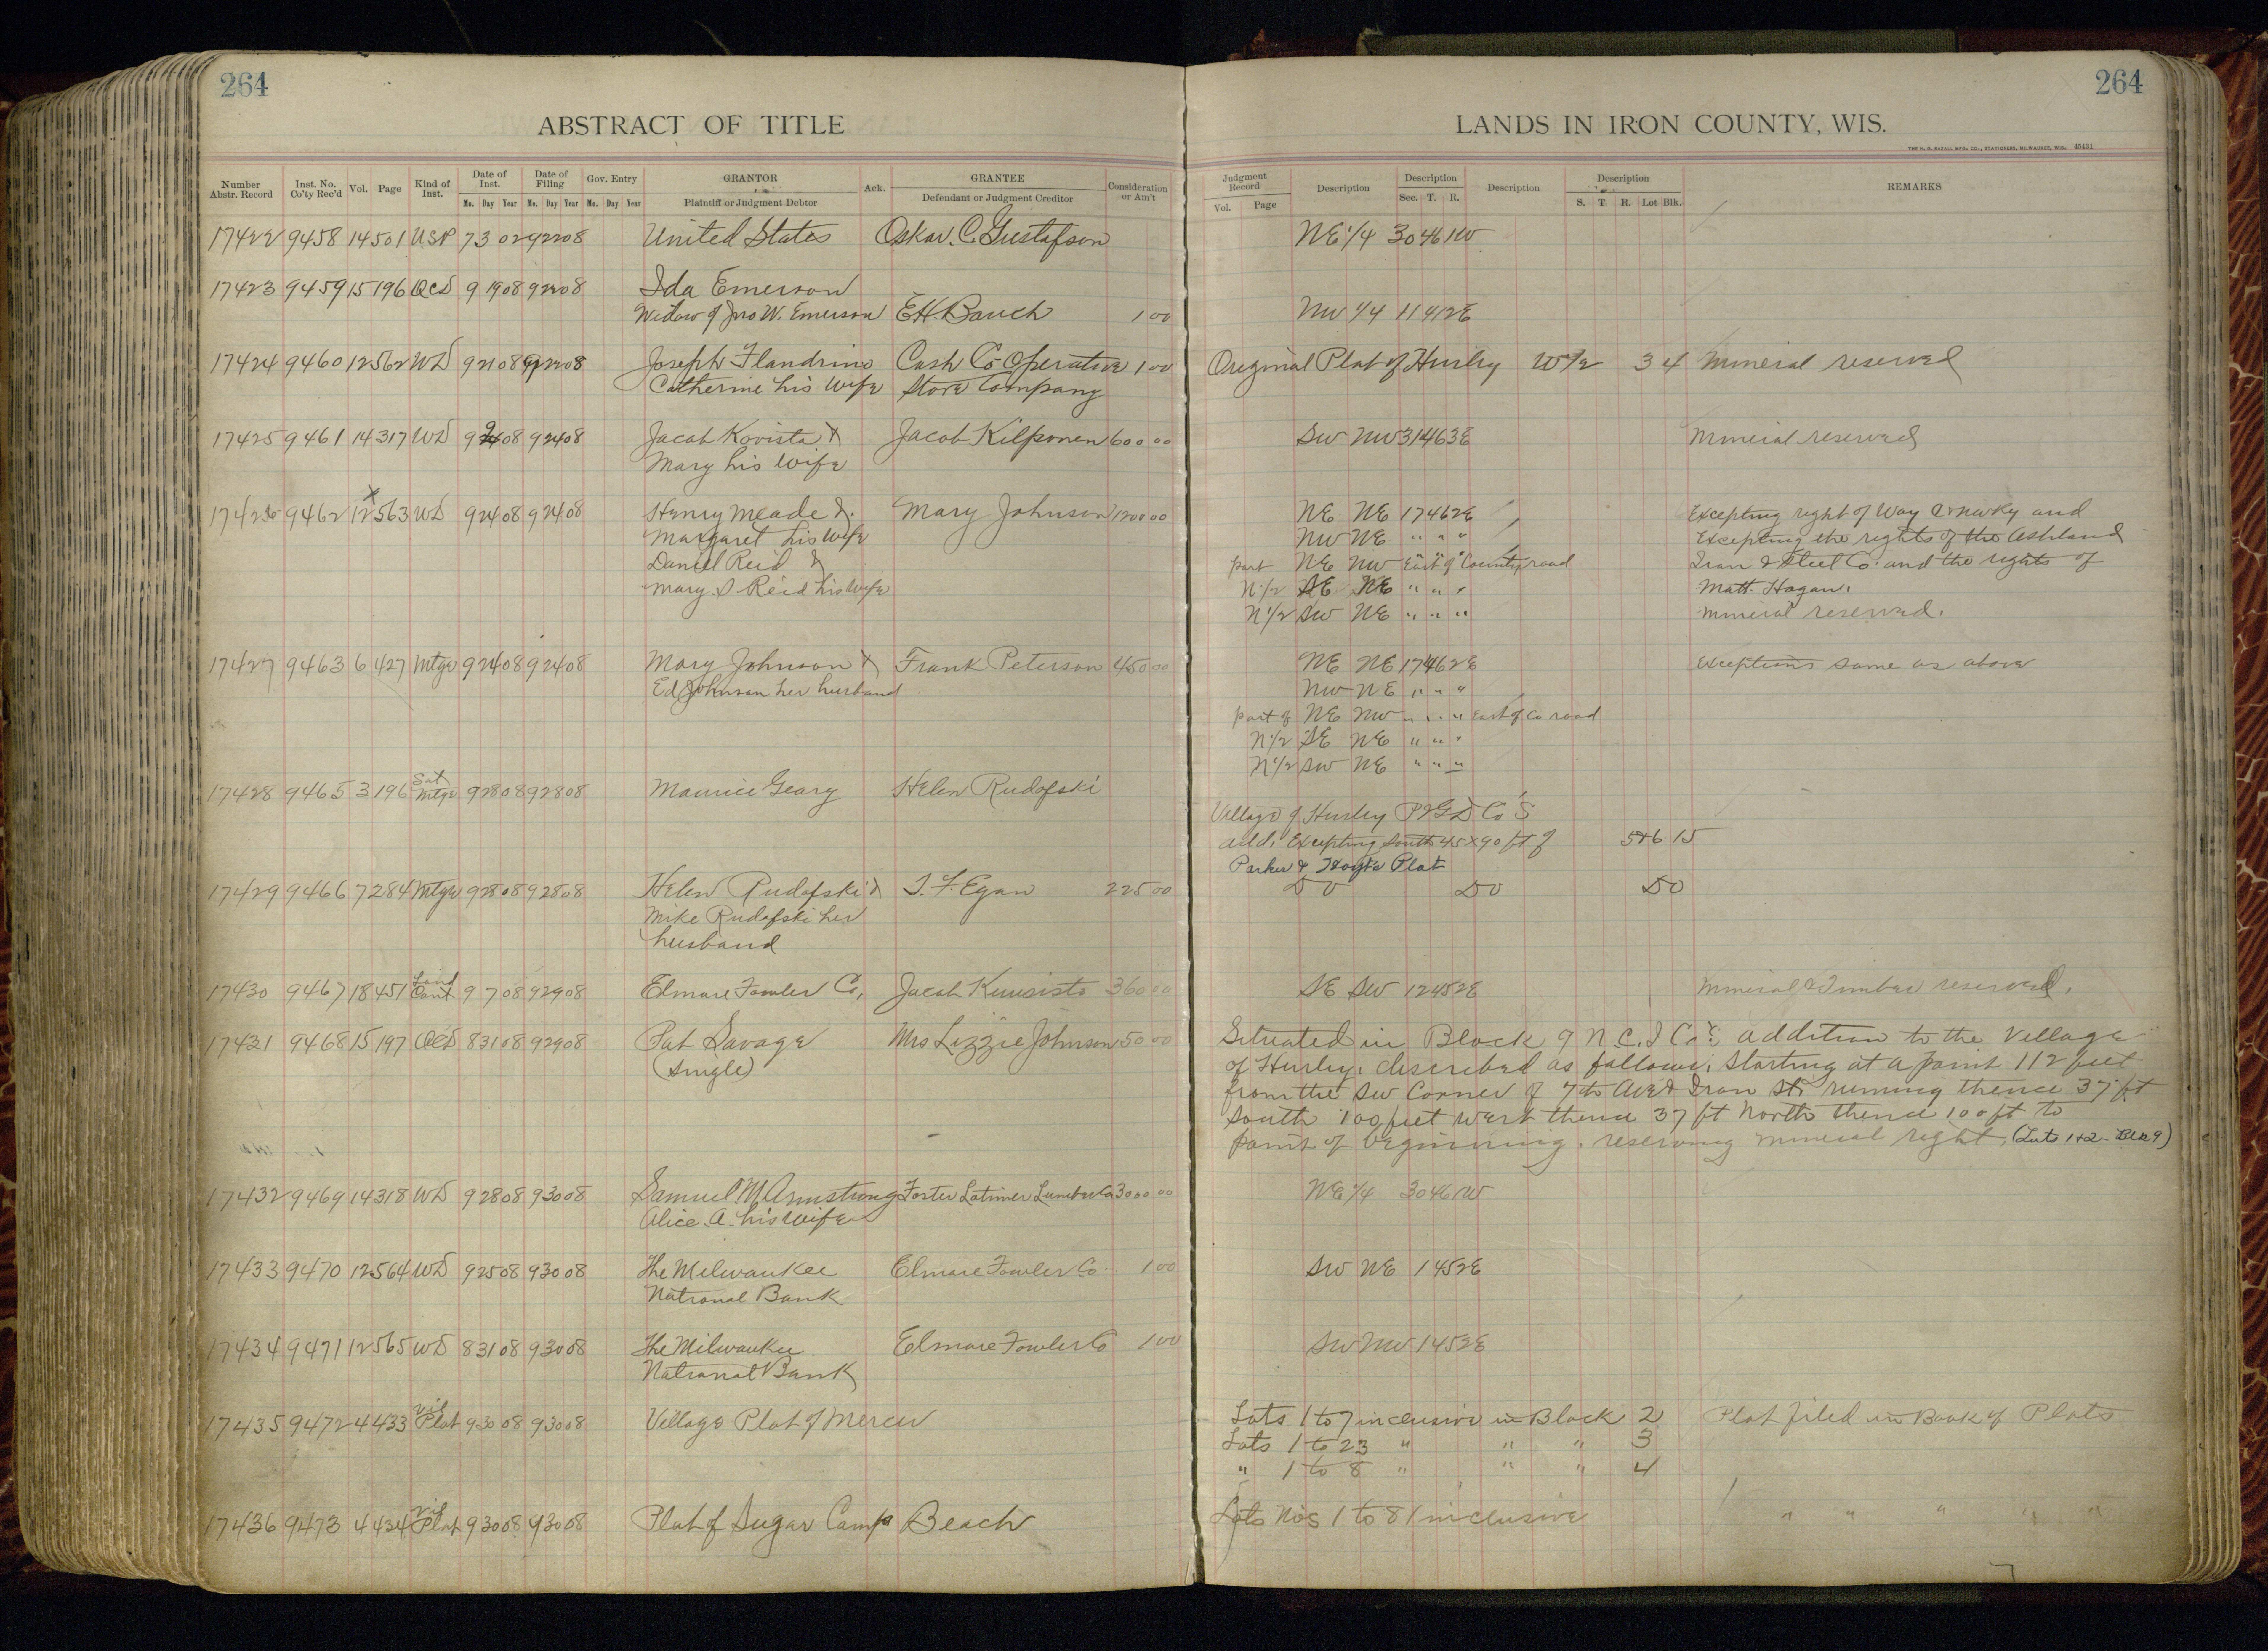 264
264
ABSTRACT OF TITLE
LANDS IN IRON COUNTY, WIS.
THE H. G. RAZALL MFG. CO., STATIONERS, MILWAUKEE, WIS. 45431
Number Abstr. Record Inst. No. Co'ty Rec'd Vol. Page Kind of Inst. Date of Inst. Mo. Day Year Date of Filing Mo. Day Year Gov. Entry Mo. Day Year GRANTOR Plaintiff or Judgment Debtor Ack. GRANTEE Defendant or Judgment Creditor Consideration or Am't
Judgment Record Vol. Page Description Description Sec. T. R. Description Description S. T. R. Lot Blk. REMARKS
17422 9458 14 501 USP 7 3 02 9 22 08 United States Oskar C. Gustafson NE 1/4 30 46 1W
17423 9459 15 196 QCD 9 19 08 9 22 08 Ida Emerson
Widow of Jno W. Emerson E.H. Bauch 1 00 NW 1/4 11 41 2E
17424 9460 12 562 WD 9 21 08 9 22 08 Joseph Flandrino Cash Co Operative 1 00 Original Plat of Hurley W 1/2 3 4 Mineral reserved
Catherine his wife Store Company
17425 9461 14 317 WD 9 9 08 9 24 08 Jacob Kovista & Jacob Kilponen 600 00 SW NW 31 46 3E Mineral reserved
Mary his wife
17426 9462 12 563 WD 9 24 08 9 24 08 Henry Meade & Mary Johnson 1200 00 NE NE 17 46 2E Excepting right of Way C & NW Ry and
X
Margaret his wife NW NE " " " Excepting the rights of the Ashland
Daniel Reid & part NE NW East of County road Iron & Steel Co. and the rights of
Mary S Reid his wife N 1/2 SE NE " " " Matt Hogan.
N 1/2 SW NE " " " Mineral reserved.
17427 9463 6 427 Mtge 9 24 08 9 24 08 Mary Johnson & Frank Peterson 450 00 NE NE 17 46 2E Exceptions same as above
Ed Johnson her husband NW NE " " "
part of NE NW " " " East of Co road
N 1/2 SE NE " " "
N 1/2 SW NE " " "
17428 9465 3 196 Sat Mtge 9 28 08 9 28 08 Maurice Geary Helen Rudofski
Village of Hurley P & G D Co's
add. Excepting South 45 x 90 ft of 5&6 15
Parker & Hoyt's Plat
17429 9466 7 284 Mtge 9 28 08 9 28 08 Helen Rudofski & T. F. Egan 225 00 Do Do Do
Mike Rudofski her
husband
17430 9467 18 451 Land Cont 9 7 08 9 29 08 Elmore Fowler Co. Jacob Kuusisto 360 00 SE SW 12 45 2E Mineral & Timber reserved.
17431 9468 15 197 QCD 8 31 08 9 29 08 Pat Savage Mrs Lizzie Johnson 50 00 Situated in Block 9 N.C.I Co's addition to the Village
(single) of Hurley, described as follows, Starting at a point 112 feet
from the SW Corner of 7th Ave & Iron St. running thence 37 ft
South 100 feet West thence 37 ft North thence 100 ft to
point of beginning, reserving mineral right. (Lots 1+2 - Blk 9)
17432 9469 14 318 WD 9 28 08 9 30 08 Samuel M. Armstrong Foster Latimer Lumber Co 3000 00 NE 1/4 30 46 1W
Alice A. his wife
17433 9470 12 564 WD 9 25 08 9 30 08 The Milwaukee Elmore Fowler Co. 1 00 SW NE 1 45 2E
National Bank
17434 9471 12 565 WD 8 31 08 9 30 08 The Milwaukee Elmore Fowler Co 1 00 SW NW 1 45 2E
National Bank
17435 9472 4 433 Vil Plat 9 30 08 9 30 08 Village Plat of Mercer Lots 1 to 7 inclusive in Block 2 Plat filed in Book of Plats
Lots 1 to 23 " " " 3
" 1 to 8 " " " 4
17436 9473 4 434 Vil Plat 9 30 08 9 30 08 Plat of Sugar Camp Beach Lots Nos 1 to 81 inclusive " " " " "